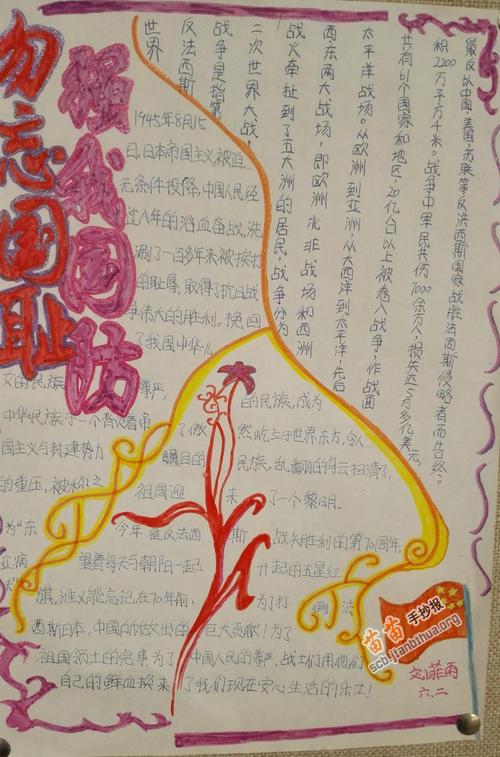 勿忘国耻
强我国防
世界
反法西斯
战争是指第
二次世界大战,
战火牵扯到了五大洲
的居民,战争分为
西东两大战场,即欧洲北非战场和西洲
太平洋战场。从欧洲到亚洲,从大西洋到太平洋,先后
共有61个国家和地区,20亿人口以上被卷入战争,作战面
积2200万千方千米。战争中军民共伤7000余万人,损失达5万多亿美元。
最反以中国,美国,苏联等反洪西斯国家战胜法西斯侵略者而告终。
1945年8月15
日,日本帝国主义被迫
无条件投降,中国人民经
过八年的浴血奋战,洗
涮了一百多年来被挨打
的耻辱,取得了抗日战
争伟大的胜利。挽回
了我国中华儿
女的民族尊严,的民族,成为
中华民族于一个
了傲然屹立于世界东方,令人
国主义与封建势力瞩目的民族,乱翻的乌云扫清了,
的重压,被称之祖国迎来了一个黎明。
为"东今年是反法西斯战头胜利的第70周年,
亚病夫"望着每天与朝阳一起升起的五星红
旗,谁又能忘记在70年前,为了打倒法
西斯日本,中国所做出的巨大贡献!为了
祖国领土的完事为了中国人民的尊严,战士们用他们
自己的鲜血换来了我们现在安心生活的乐土!
苗苗手抄报
scb.jianbihua.org
六.二